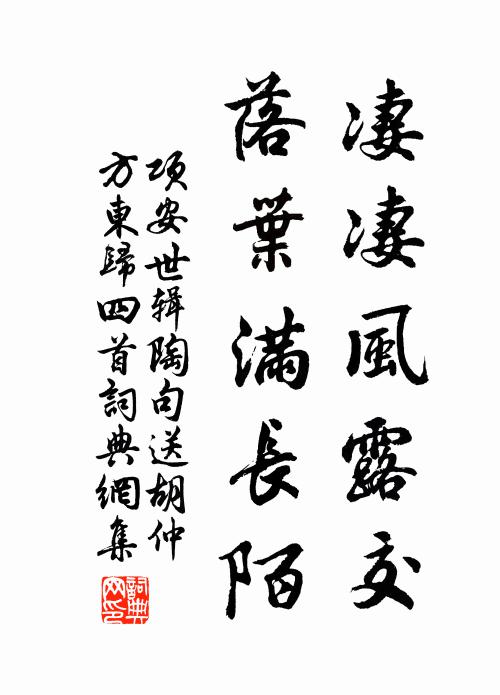 凄凄風露交
落葉滿長陌
項安世辑陶句送胡仲
方東歸四首詞典網集
詞典
网印